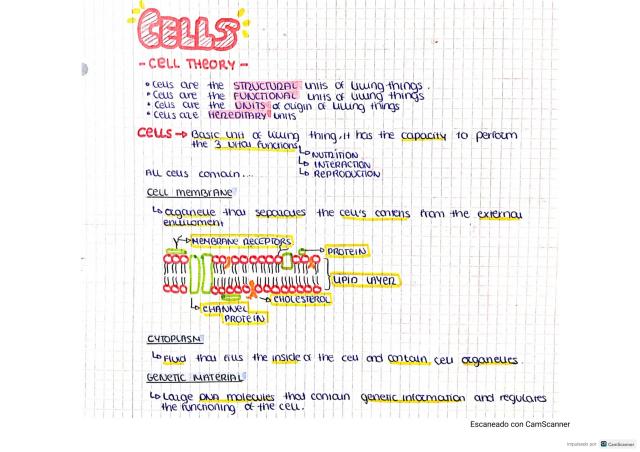 CELLS
- CELL THEORY -
• Cells are the STRUCTURAL units of living things.
• Cells are the FUNCTIONAL units of living things
• Cells are the UNITS of origin of living things
• Cells are HEREDITARY units
CELLS → Basic unit of living thing, it has the capacity to perform
the 3 vital functions
↳ NUTRITION
↳ INTERACTION
↳ REPRODUCTION
All cells contain...
CELL MEMBRANE
↳ organelle that separates the cell's contens from the external
enviroment
MEMBRANE RECEPTORS
PROTEIN
LIPID LAYER
CHOLESTEROL
CHANNEL
PROTEIN
CYTOPLASM
↳ Fluid that fills the inside of the cell and contain cell organelles.
GENETIC MATERIAL
↳ Large DNA molecules that contain genetic information and regulates
the functioning of the cell.
Escaneado con CamScanner
Impulsado por CamScanner